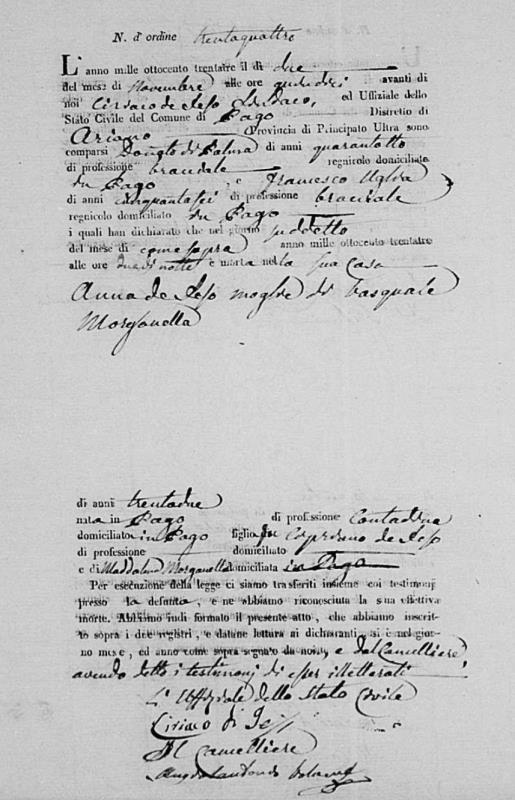 N. d' ordine trentaquattro
L' anno mille ottocento trentatre il dì due
del mese di Novembre alle ore quindici avanti di
noi Ciriaco de Jeso Sindaco, ed Uffiziale dello
Stato Civile del Comune di Pago Distretto di
Ariano Provincia di Principato Ultra sono
comparsi Donato di di anni quarantotto
di professione bracciale regnicolo domiciliato
in Pago, e Francesco
di anni cinquantasei di professione bracciale
regnicolo domiciliato in Pago
i quali han dichiarato che nel giorno suddetto
del mese di come sopra anno mille ottocento trentatre
alle ore due di notte è morta nella sua casa
Anna de Jeso moglie di Pasquale
Morganella
di anni trentadue
nata in Pago di professione Contadina
domiciliato in Pago figlia di de Jeso
di professione domiciliato
e di Maddalena Morganella domiciliata in Pago
Per esecuzione della legge ci siamo trasferiti insieme coi testimonj
presso la defunta, e ne abbiamo riconosciuta la sua effettiva
morte. Abbiamo indi formato il presente atto, che abbiamo inscrit-
to sopra i due registri, e datane lettura ai dichiaranti, si è nel gior-
no mese, ed anno come sopra segnato da noi, e dal Cancelliere
avendo detto i testimonj di esser illetterati
L' Uffiziale dello Stato Civile
Ciriaco di Jeso
Il Cancelliere